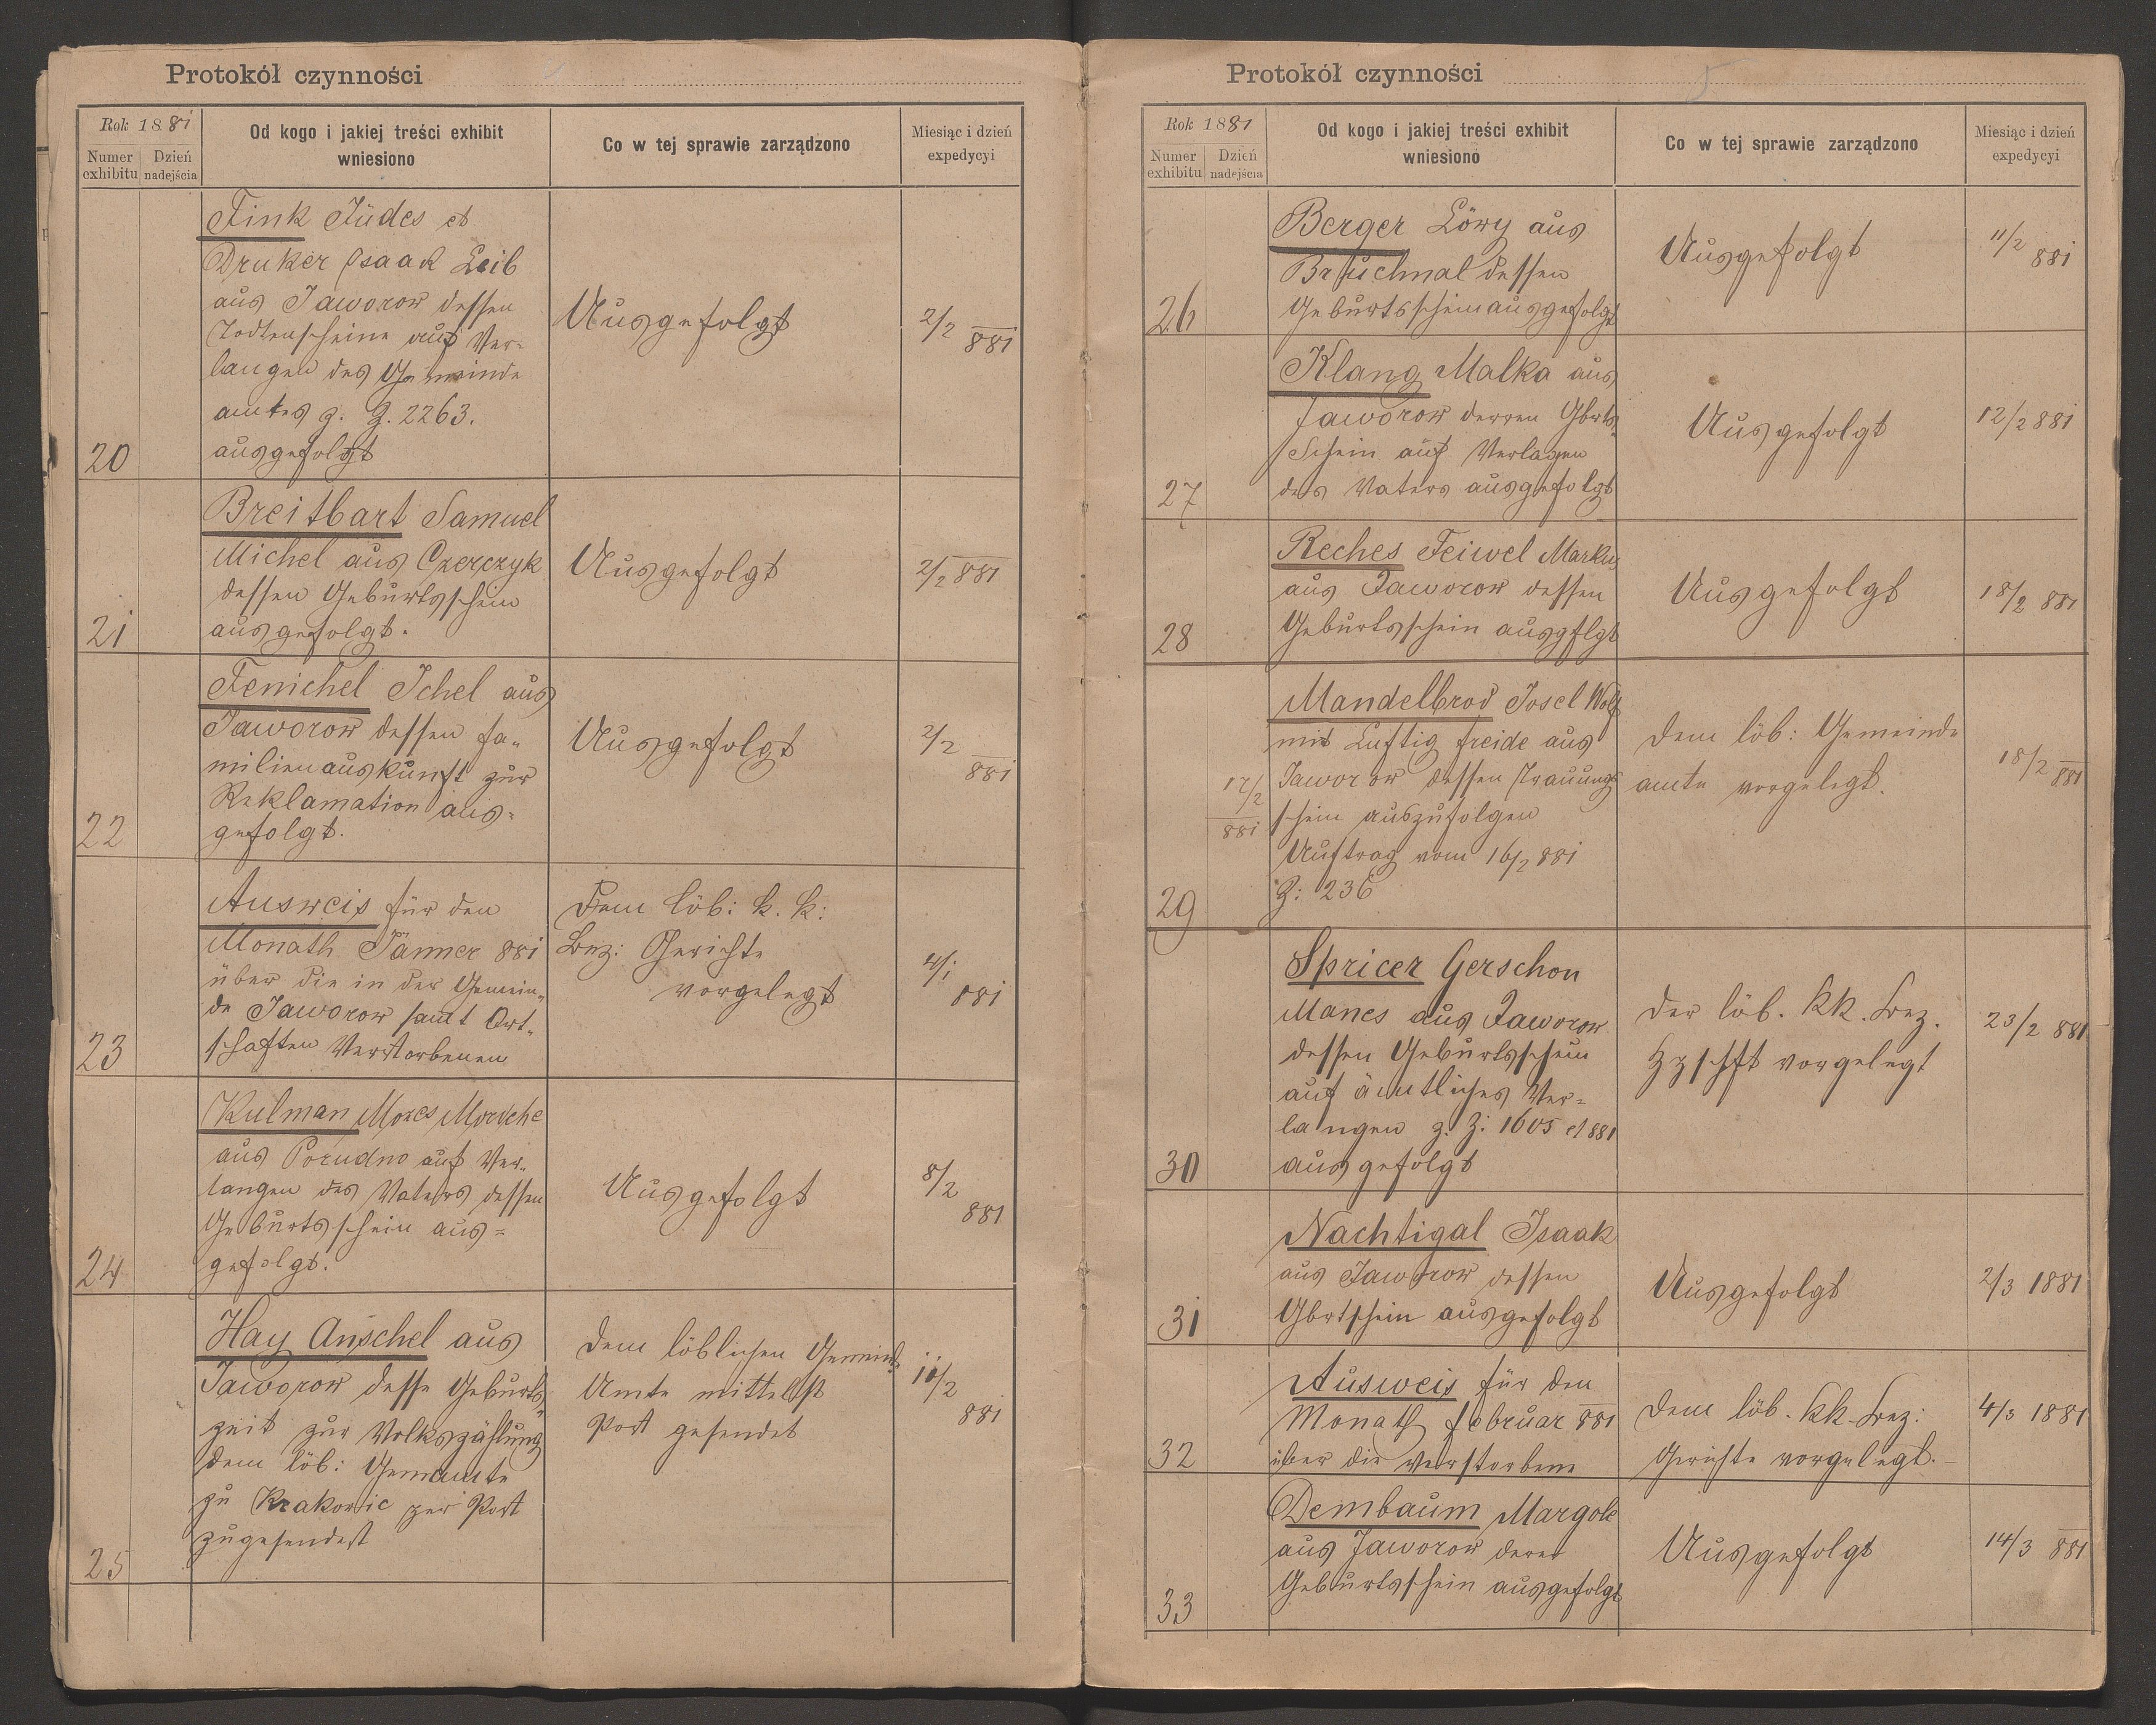 Protokół czynności
Rok 1881
Numer exhibitu
Dzień nadejścia
Od kogo i jakiej treści exhibit wniesiono
Co w tej sprawie zarządzono
Miesiąc i dzień expedycyi
20
Fink Jüdes et
Druker Isaak Leib
aus Jaworow dessen
Todtenscheine auf Ver-
langen des Gemeinde
amtes z. Z. 2263.
ausgefolgt
Ausgefolgt
2/2 881
21
Breitbart Samuel
Michel aus Czerczyk
dessen Geburtsschein
ausgefolgt.
Ausgefolgt
2/2 881
22
Fenichel Ichel aus
Jaworow dessen Fa-
milienauskunft zur
Reklamation aus-
gefolgt.
Ausgefolgt
2/2 881
23
Ausweis für den
Monath Jänner 881
über die in der Gemein-
de Jaworow samt Ort-
schaften Verstorbenen
Dem löb: k. k:
Bez: Gerichte
vorgelegt
4/1 881
24
Kulman Moses Mordche
aus Porudno auf Ver-
langen des Vaters dessen
Geburtsschein aus-
gefolgt.
Ausgefolgt
8/2 881
25
Hay Anschel aus
Jaworow desse Geburts-
zeit zur Volkszählung
dem löb: Gemamte
zu Krakowic per Post
zugesendet
Dem löblichen Gemeinde
Amte mittelst
Post gesendet
11/2 881
Protokół czynności
5
Rok 1881
Numer exhibitu
Dzień nadejścia
Od kogo i jakiej treści exhibit wniesiono
Co w tej sprawie zarządzono
Miesiąc i dzień expedycyi
26
Berger Löwy aus
Bruchmal dessen
Geburtsschein ausgefolgt
Ausgefolgt
11/2 881
27
Klang Malka aus
Jaworow derren Gbrts-
Schein auf Verlagen
des Vaters ausgefolgt
Ausgefolgt
12/2 881
28
Reches Feiwel Markus
aus Jaworow dessen
Geburtsschein ausgflgt
Ausgefolgt
18/2 881
29
17/2 881
Mandelbrod Josel Wolf
mit Luftig Freide aus
Jaworow dessen Trauungs
schein auszufolgen
Auftrag vom 16/2 881
Z: 236
Dem löb: Gemeinde
amte vorgelegt.
18/2 881
30
Spricer Gerschon
Manes aus Jaworow
dessen Geburtsschein
auf ämtliches Ver-
langen z. Z: 1605 et 881
ausgefolgt
Der löb. kk. Bez.
Hzschft vorgelegt
23/2 881
31
Nachtigal Isaak
aus Jaworow dessen
Gbrtschein ausgefolgt
Ausgefolgt
2/3 1881
32
Ausweis für den
Monath Februar 881
über die Verstorbene
Dem löb. kk. Bez:
Gerichte vorgelegt.
4/3 1881
33
Dembaum Margole
aus Jaworow deren
Geburtsschein ausgefolgt
Ausgefolgt
14/3 881